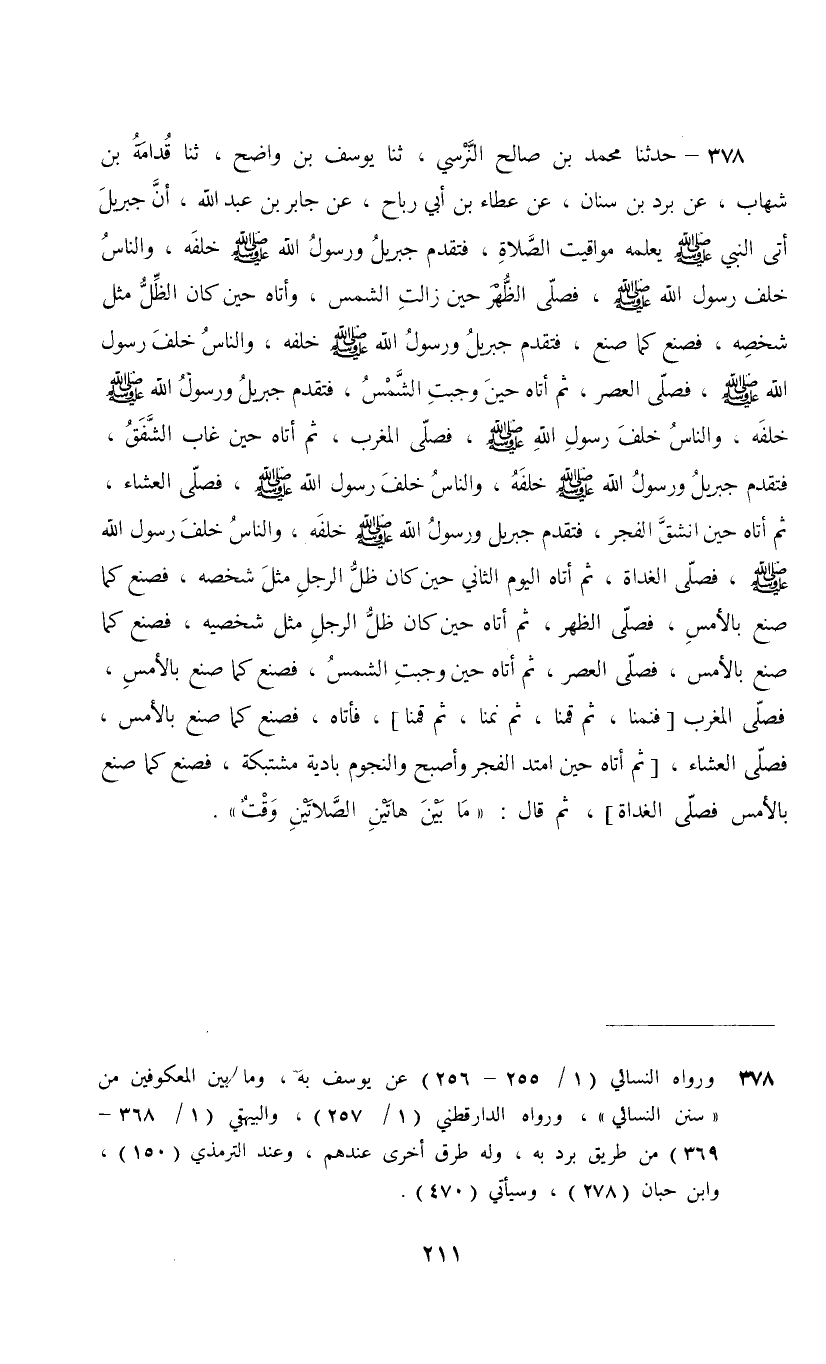 ٣٧٨ – حدثنا محمد بن صالح النَّرْسي ، ثنا يوسف بن واضح ، ثنا قُدامَةُ بن
شهاب ، عن برد بن سنان ، عن عطاء بن أبي رباح ، عن جابر بن عبد الله ، أنَّ جبريلَ
أتى النبي ﷺ يعلمه مواقيت الصَّلاةِ ، فتقدم جبريلُ ورسولُ الله ﷺ خلفَه ، والناسُ
خلف رسول الله ﷺ ، فصلّى الظُّهْرَ حين زالتِ الشمس ، وأتاه حين كان الظِّلُّ مثل
شخصِه ، فصنع كما صنع ، فتقدم جبريلُ ورسولُ الله ﷺ خلفه ، والناسُ خلفَ رسول
الله ﷺ ، فصلّى العصر ، ثم أتاه حينَ وجبتِ الشَّمْسُ ، فتقدم جبريلُ ورسولُ الله ﷺ
خلفَه ، والناسُ خلفَ رسولِ اللهِ ﷺ ، فصلّى المغرب ، ثم أتاه حين غاب الشَّفَقُ ،
فتقدم جبريلُ ورسولُ الله ﷺ خلفَهُ ، والناسُ خلفَ رسول الله ﷺ ، فصلّى العشاء ،
ثم أتاه حين انشقَّ الفجر ، فتقدم جبريل ورسولُ الله ﷺ خلفَه ، والناسُ خلفَ رسول الله
ﷺ ، فصلّى الغداة ، ثم أتاه اليوم الثاني حين كان ظلُّ الرجلِ مثلَ شخصه ، فصنع كما
صنع بالأمسِ ، فصلّى الظهر ، ثم أتاه حين كان ظلُّ الرجلِ مثل شخصيه ، فصنع كما
صنع بالأمس ، فصلّى العصر ، ثم أتاه حين وجبتِ الشمسُ ، فصنع كما صنع بالأمسِ ،
فصلّى المغرب [ فنمنا ، ثم قمنا ، ثم نمنا ، ثم قمنا ] ، فأتاه ، فصنع كما صنع بالأمس ،
فصلّى العشاء ، [ ثم أتاه حين امتد الفجر وأصبح والنجوم بادية مشتبكة ، فصنع كما صنع
بالأمس فصلّى الغداة ] ، ثم قال : « مَا بَيْنَ هاتَيْنِ الصَّلاتَيْنِ وَقْتٌ » .
٣٧٨ ورواه النسائي ( ١ / ٢٥٥ – ٢٥٦ ) عن يوسف به ، وما بين المعكوفين من
« سنن النسائي » ، ورواه الدارقطني ( ١ / ٢٥٧ ) ، والبيهقي ( ١ / ٣٦٨ –
٣٦٩ ) من طريق برد به ، وله طرق أخرى عندهم ، وعند الترمذي ( ١٥٠ ) ،
وابن حبان ( ٢٧٨ ) ، وسيأتي ( ٤٧٠ ) .
٢١١